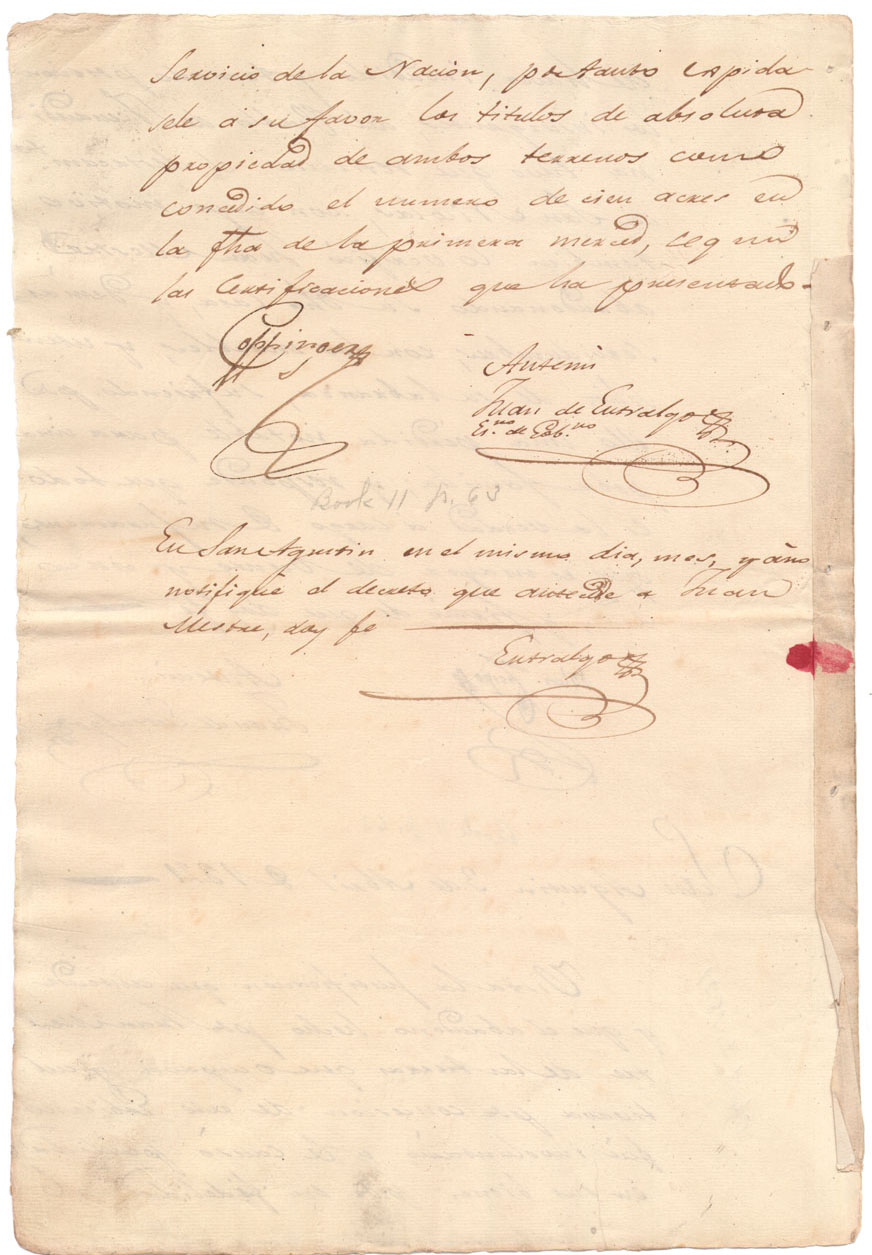 Servicio de la Nacion, portanto espida
sele à su favor los titulos de absoluta
propiedad de ambos terrenos como
concedido el numero de cien acres en
la fha de la primera merced, segun
las Certificaciones que ha presentado.
Coppinger
Antemi
Juan de Entralgo
Es.no de Gob.no
Book 11 p. 63
En San Agustin en el mismo dia, mes, y año
notifiqué el decreto que antecede a Juan
Mestre, doy fé
Entralgo